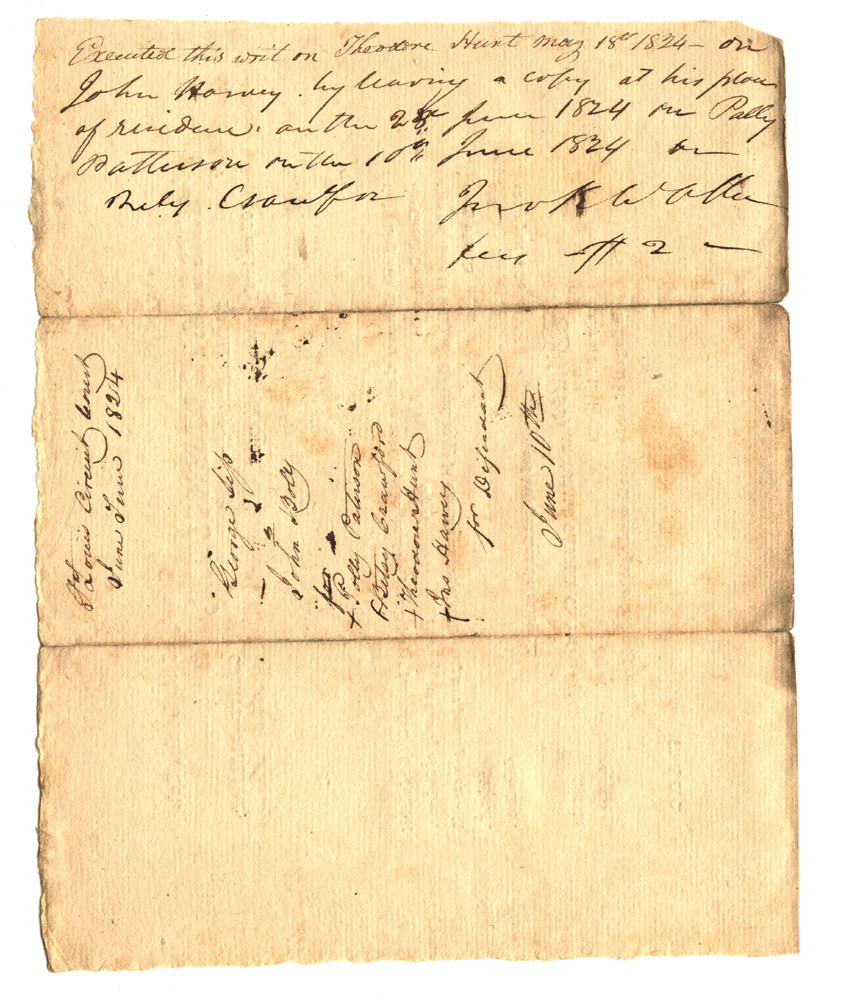 Executed this writ on Theodore Hunt May 18th 1824 – on
John Harvey by leaving a copy at his place
of residence. on the 2d June 1824 on Polly
Patterson on the 10th June 1824 on
Betsy Crawford Jno K Walker
fees $ 2 —
St Louis Circuit Court
June Term 1824
George Sip
John Boly
for
+ Polly Paterson
+ Betsy Crawford
+ Theodore Hunt
+ Jno Harvey
for Defendant
June 10th